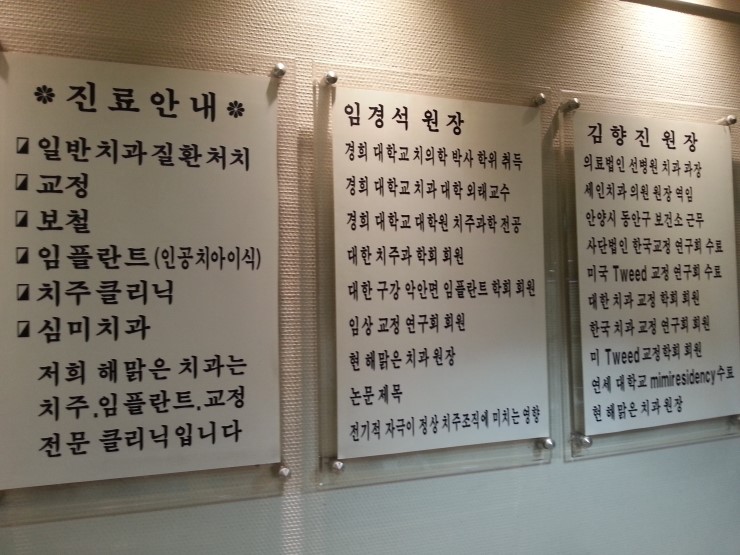 ✽ 진료안내 ✽
일반치과질환처치
교정
보철
임플란트(인공치아이식)
치주클리닉
심미치과
저희 해맑은 치과는
치주.임플란트.교정
전문 클리닉입니다
임경석 원장
경희 대학교 치의학 박사 학위 취득
경희 대학교 치과 대학 외래교수
경희 대학교 대학원 치주과학 전공
대한 치주과 학회 회원
대한 구강 악안면 임플란트 학회 회원
임상 교정 연구회 회원
현 해맑은 치과 원장
논문 제목
전기적 자극이 정상 치주조직에 미치는 영향
김향진 원장
의료법인 선병원 치과 과장
세인치과 의원 원장 역임
안양시 동안구 보건소 근무
사단법인 한국교정 연구회 수료
미국 Tweed 교정 연구회 수료
대한 치과 교정 학회 회원
한국 치과 교정 연구회 회원
미 Tweed교정학회 회원
연세 대학교 mimiresidency수료
현 해맑은 치과 원장